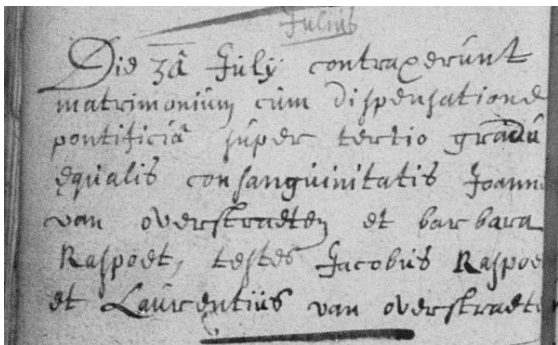 Julius
Die 3â July contraxerunt
matrimonium cum dispensatione
pontificiâ super tertio gradu
equalis consanguinitatis Joann
van overstraeten et barbara
Raspoet, testes Jacobus Raspoe
et Laurentius van overstraete